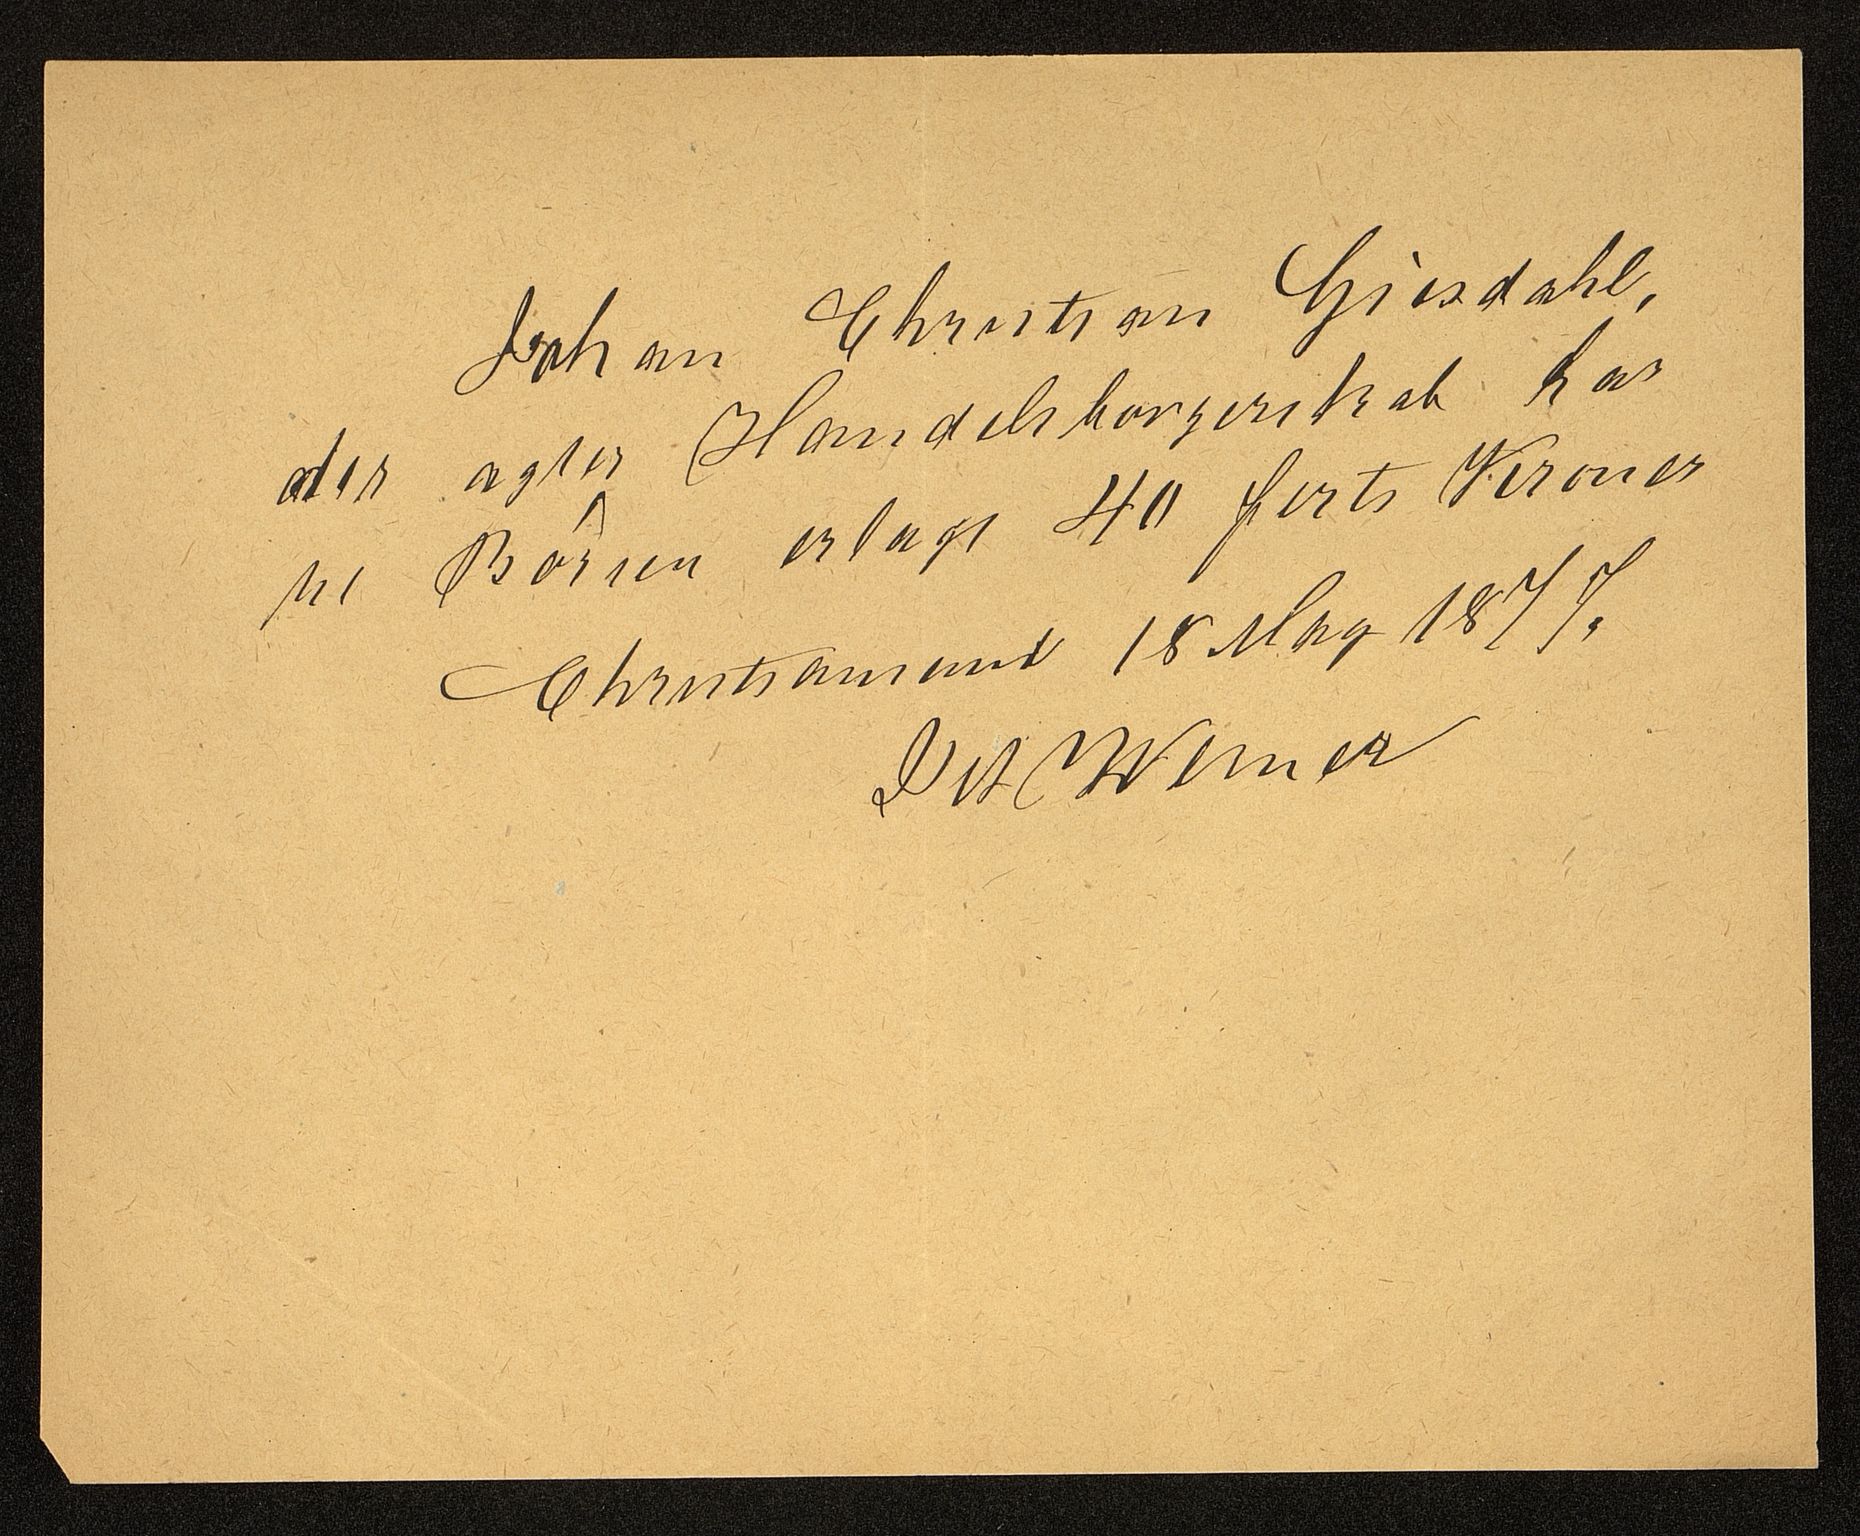 Johan Christian Giesdahl,
der agter Handelsborgerskab har
til Børsen erlagt 40 førti Kroner
Christiansund 18 May 1877.
Werner